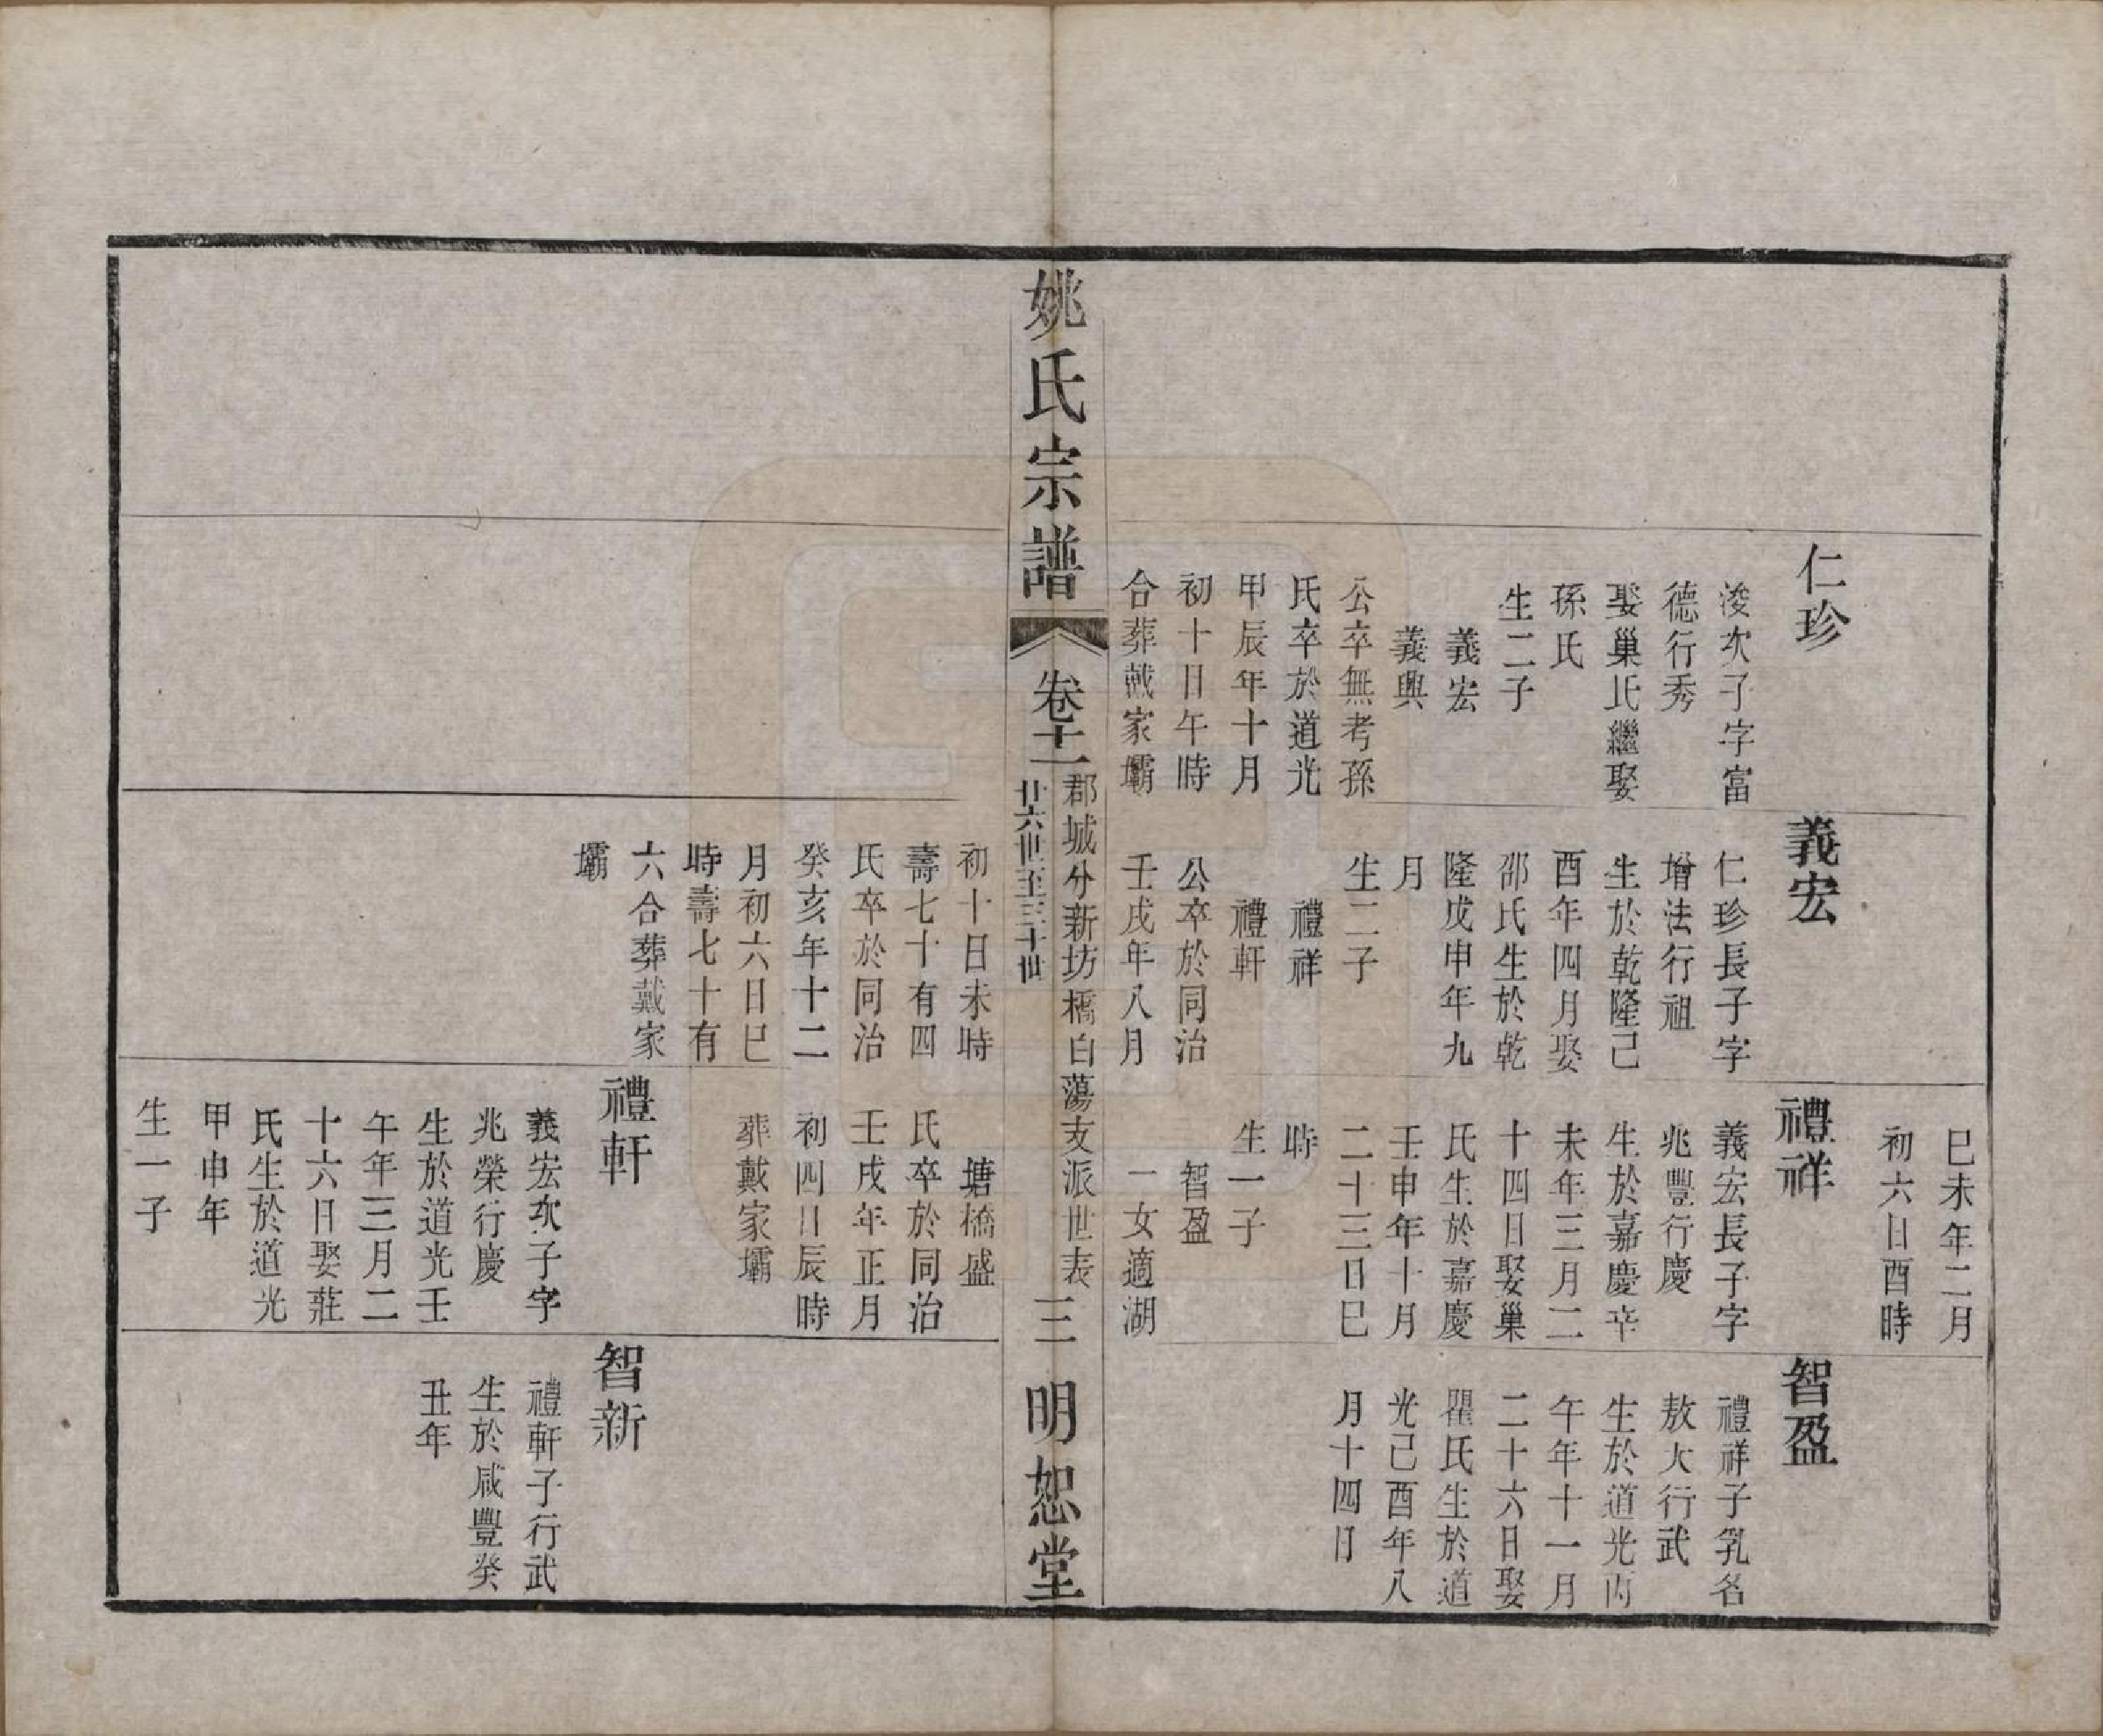 仁珍
浚次子字富
德行秀
娶巢氏繼娶
孫氏
生二子
義宏
義興
公卒無考孫
氏卒於道光
甲辰年十月
初十日午時
合葬戴家壩
義宏
仁珍長子字
增法行祖
生於乾隆己
酉年四月娶
邵氏生於乾
隆戊申年九
月
生二子
禮祥
禮軒
公卒於同治
壬戌年八月
巳未年二月
初六日酉時
禮祥
義宏長子字
兆豐行慶
生於嘉慶辛
未年三月二
十四日娶巢
氏生於嘉慶
壬申年十月
二十三日巳
時
生一子
智盈
一女適湖
智盈
禮祥子乳名
敖大行武
生於道光丙
午年十一月
二十六日娶
瞿氏生於道
光己酉年八
月十四日
姚氏宗譜
卷十一
郡城分新坊橋白蕩支派世表
廿六世至三十世
三
明恕堂
初十日未時
壽七十有四
氏卒於同治
癸亥年十二
月初六日巳
時壽七十有
六合葬戴家
壩
塘橋盛
氏卒於同治
壬戌年正月
初四日辰時
葬戴家壩
禮軒
義宏次子字
兆榮行慶
生於道光壬
午年三月二
十六日娶莊
氏生於道光
甲申年
生一子
智新
禮軒子行武
生於咸豐癸
丑年